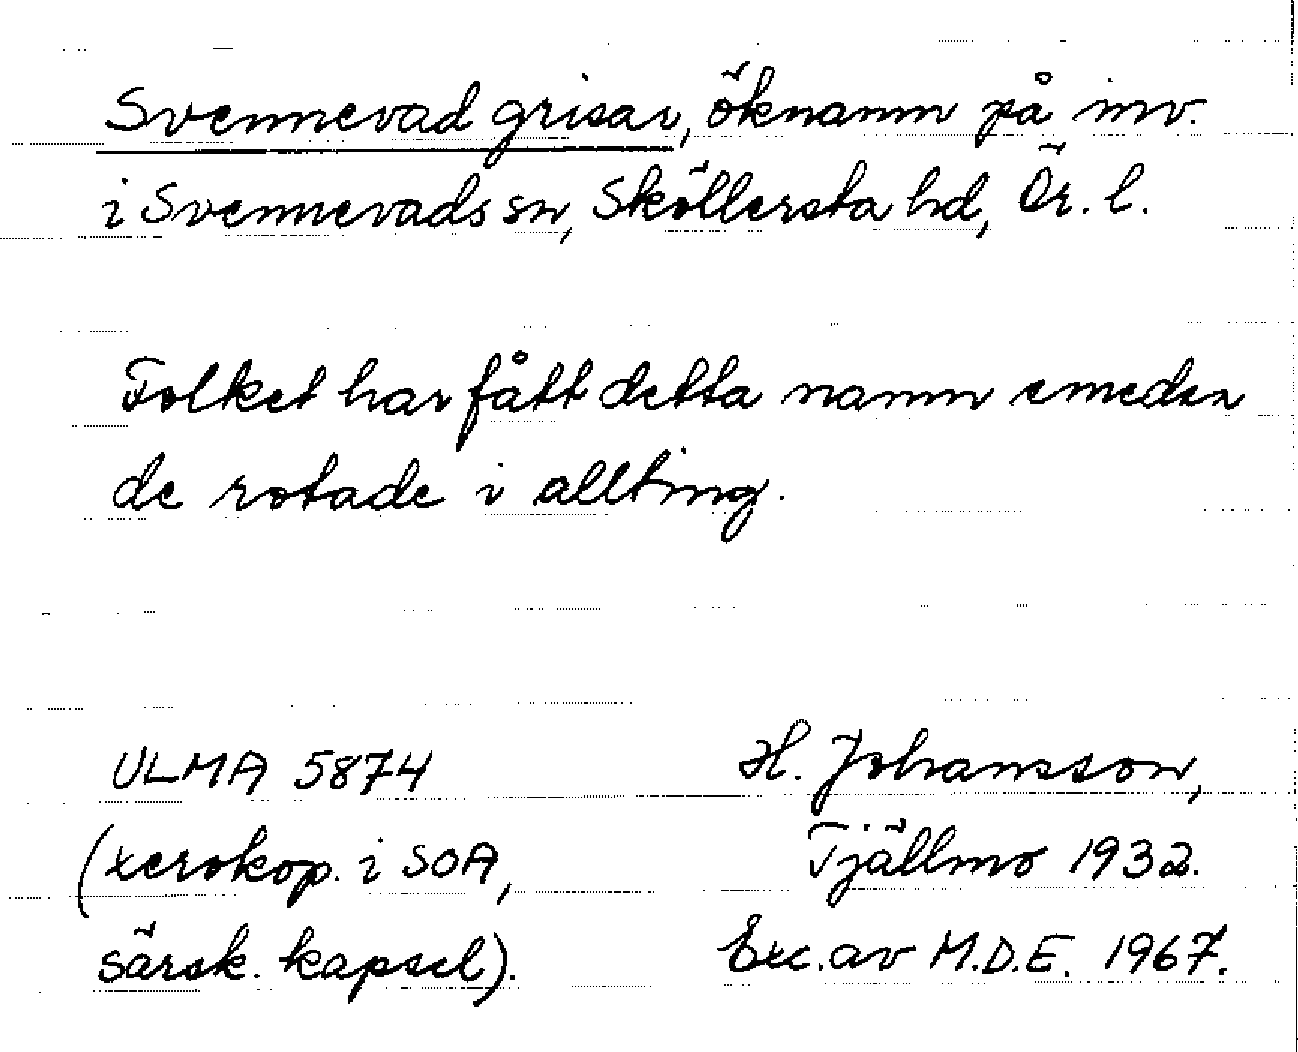 Svennevad grisar, öknamn på inv.
i Svennevads sn, Sköllersta hd, Ör. l.
Folket har fått detta namn emedan
de rotade i allting.
ULMA 5874
(xerokop. i SOA,
särsk. kapsel).
H. Johansson,
Tjällmo 1932.
Exc. av M.D.E. 1967.